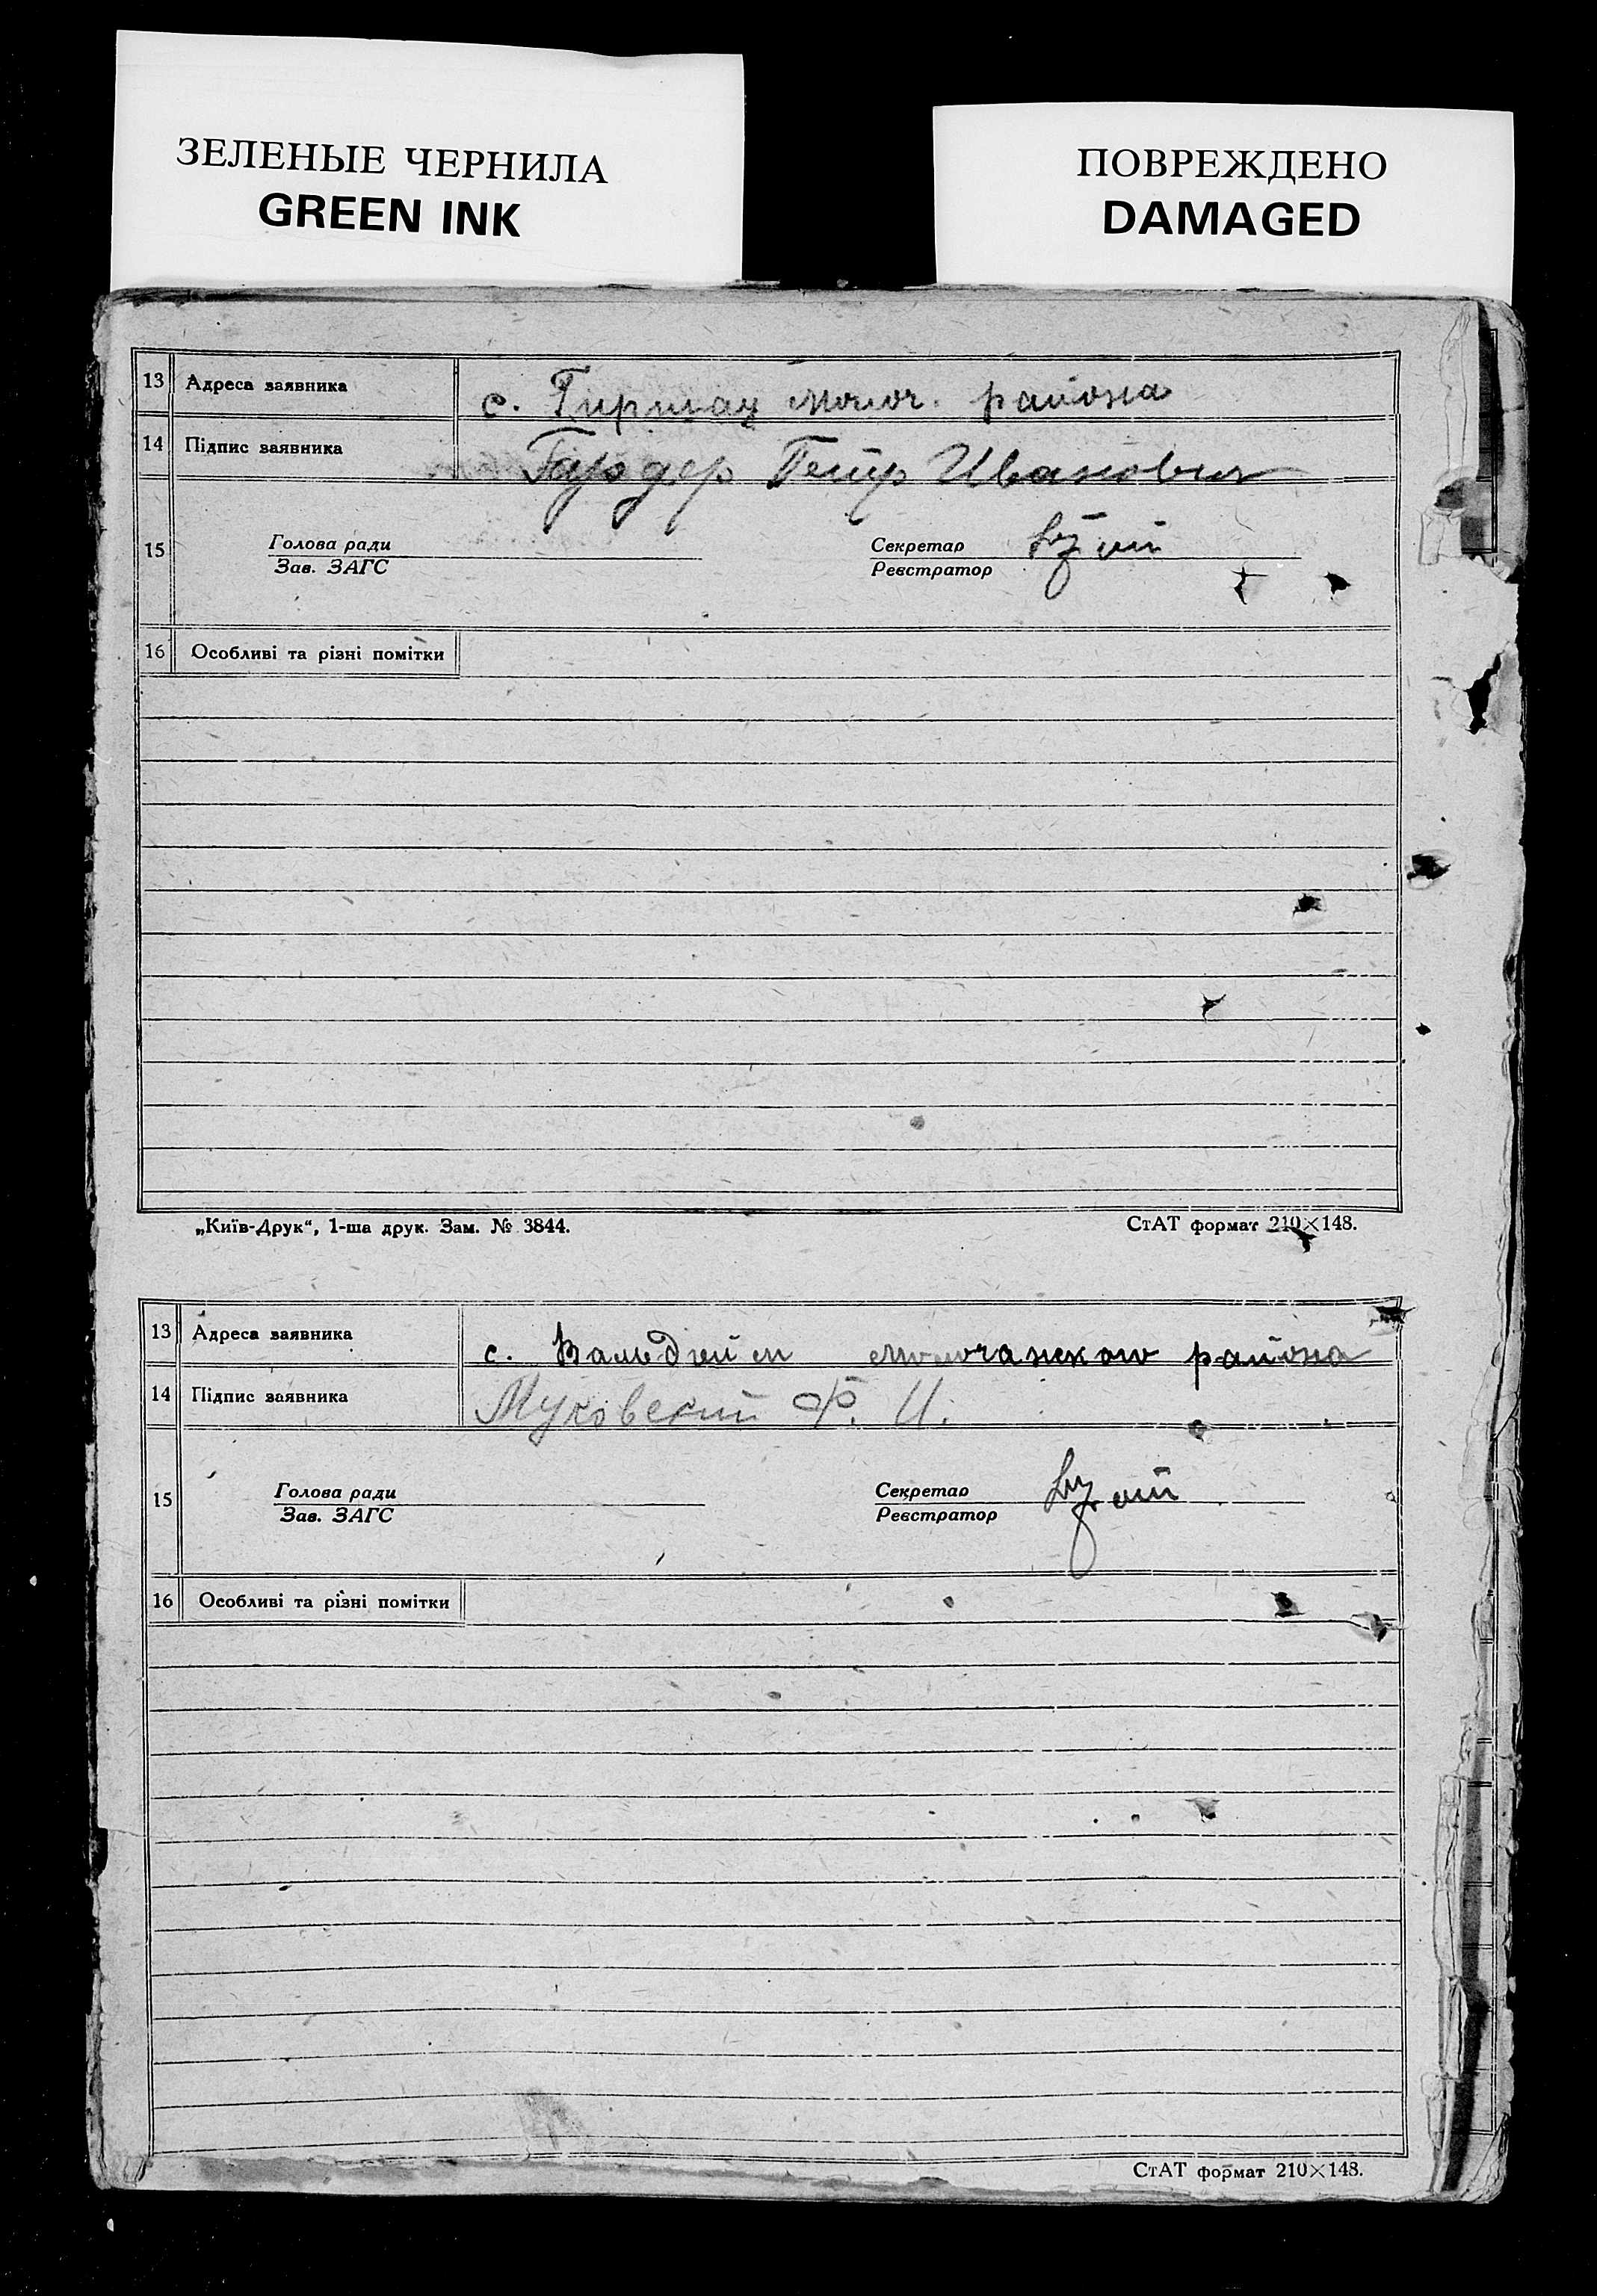 ЗЕЛЕНЫЕ ЧЕРНИЛА
GREEN INK
ПОВРЕЖДЕНО
DAMAGED
13 Адреса заявника с. Гиршау молоч. района
14 Підпис заявника Гардер Петр Иванович
15
Голова ради Секретар
Зав. ЗАГС Реєстратор
16 Особливі та різні помітки
„Київ-Друк“, 1-ша друк. Зам. № 3844. СтАТ формат 210×148.
13 Адреса заявника с. Вальдгейм молочанского района
14 Підпис заявника Муковский Ф. И.
15
Голова ради Секретар
Зав. ЗАГС Реєстратор
16 Особливі та різні помітки
СтАТ формат 210×148.